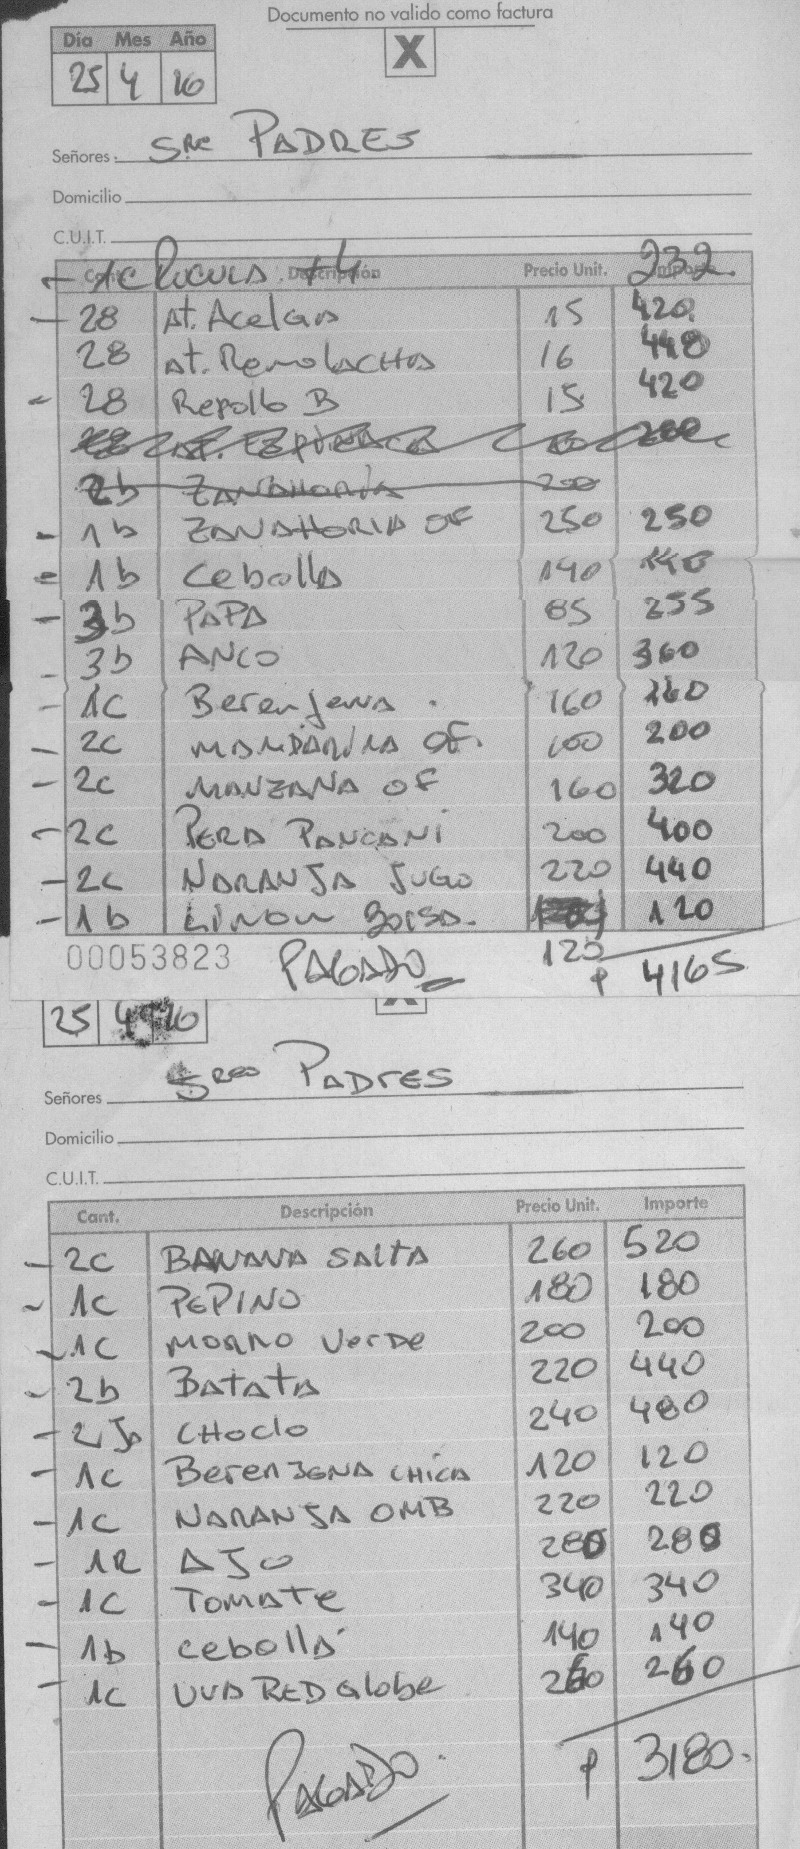 Documento no valido como factura
Día Mes Año
X
25 4 16
Señores: Sres PADRES
Domicilio
C.U.I.T.
Cant. Descripción Precio Unit. Importe
- 1C RUCULA +4 232.
- 28 At. Acelga 15 420.
28 At. Remolacha 16 448
- 28 Repollo B 15 420
28 At. ESPINACA 200
2b ZANAHORIA 200
- 1b ZANAHORIA OF 250 250
- 1b Cebolla 140 140
- 3b PAPA 85 255
- 3b ANCO 120 360
- 1C Berenjena. 160 160
- 2C MANDARINA OF. 100 200
- 2C MANZANA OF 160 320
- 2C PERA PANCANI 200 400
- 2C NARANJA JUGO 220 440
- 1b LIMON BOLSA. 120
00053823 PAGADO 120 $ 4165
25 4 16
Señores Sres PADRES
Domicilio
C.U.I.T.
Cant. Descripción Precio Unit. Importe
- 2C BANANA SALTA 260 520
- 1C PEPINO 180 180
- 1C MORRO Verde 200 200
- 2b BATATA 220 440
- 2 Ja CHOCLO 240 480
- 1C BERENJENA CHICA 120 120
- 1C NARANJA OMB 220 220
- 1R AJO 280 280
- 1C TOMATE 340 340
- 1b Cebolla 140 140
- 1C UVA RED Globe 260 260
PAGADO. $ 3180.